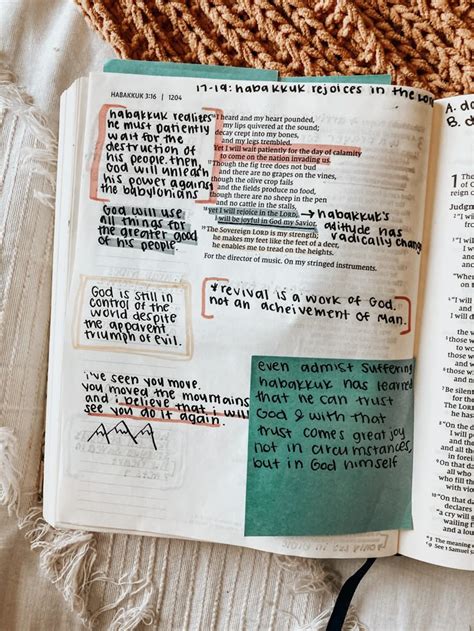 HABAKKUK 3:16 | 1204
17-19: habakkuk rejoices in the Lor
habakkuk realizes
he must patiently
wait for the
destruction of
his people. then,
God will unleash
his power against
the babylonians
God will use
all things for
the greater good
of his people.
16 I heard and my heart pounded,
my lips quivered at the sound;
decay crept into my bones,
and my legs trembled.
Yet I will wait patiently for the day of calamity
to come on the nation invading us.
17 Though the fig tree does not bud
and there are no grapes on the vines,
though the olive crop fails
and the fields produce no food,
though there are no sheep in the pen
and no cattle in the stalls,
18 yet I will rejoice in the LORD,
I will be joyful in God my Savior.
→ habakkuk's
attitude has
radically chang
19 The Sovereign LORD is my strength;
he makes my feet like the feet of a deer,
he enables me to tread on the heights.
For the director of music. On my stringed instruments.
God is still in
control of the
world despite
the apparent
triumph of evil.
*revival is a work of God,
not an acheivement of man.
i've seen you move.
you moved the mountains
and i believe that i will
see you do it again.
even admist suffering
habakkuk has learned
that he can trust
God & with that
trust comes great joy
not in circumstances,
but in God himself
A. d
B. d
1 The
sign o
Judgm